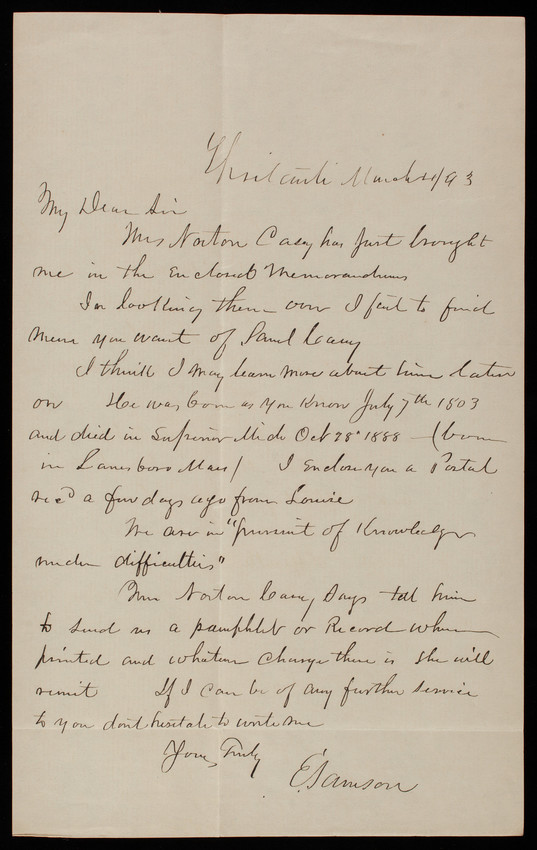 Ypsilanti March 21/93
My Dear Sir
Mrs Norton Casey has just brought
me in the Enclosed Memorandums
In looking them over I fail to find
much you want of Saml Casey
I think I may learn more about him later
on He was born as you Know July 7th 1803
and died in Superior Mich Oct 28" 1888 - (born
in Lanesboro Mass) I Enclose you a Postal
recd a few days ago from Louise
We are in "pursuit of Knowledge
under difficulties"
Mrs Norton Casey Says tell him
to send us a pamphlet or Record when
printed and whatever charge there is she will
remit If I can be of any further service
to you dont hesitate to write me
Yours Truly
E Samson